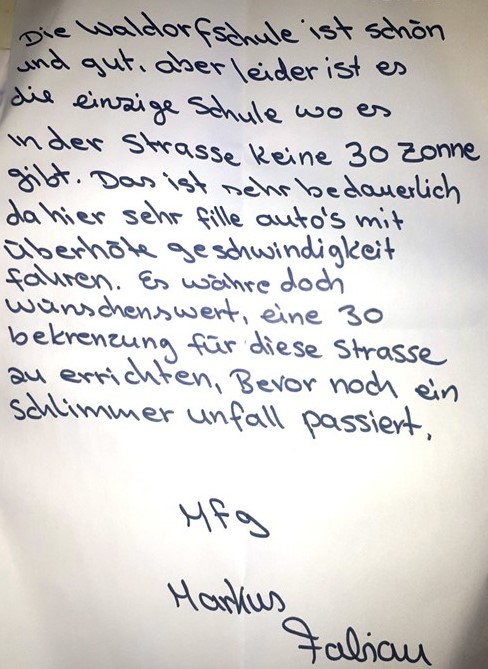 Die Waldorfschule ist schön
und gut. aber leider ist es
die einzige Schule wo es
in der Strasse keine 30 Zonne
gibt. Das ist sehr bedauerlich
da hier sehr fille auto's mit
überhöte geschwindigkeit
fahren. Es währe doch
wünschenswert, eine 30
bekrenzung für diese Strasse
zu errichten, Bevor noch ein
schlimmer unfall passiert.
Mfg
Markus
Fabian